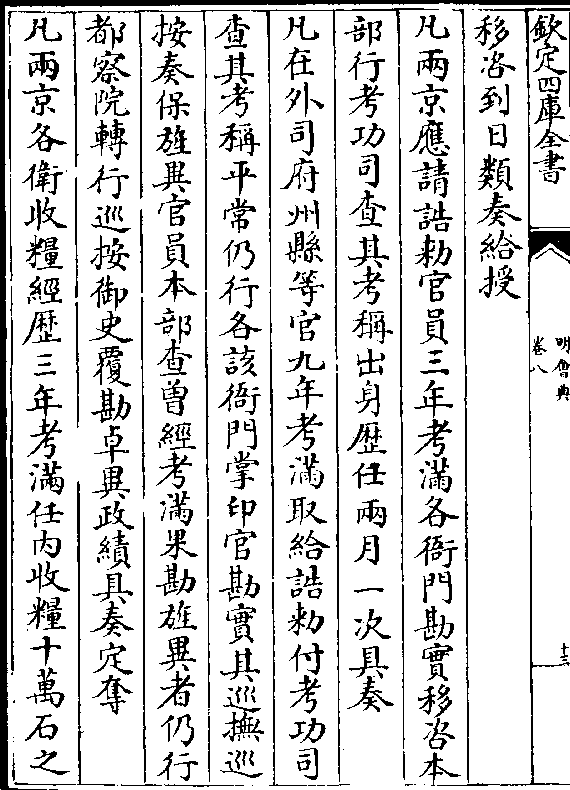 欽定四庫全書
明會典
卷八
十三
移咨到日類奏給授
凡兩京應請誥勅官員三年考滿各衙門勘實移咨本
部行考功司查其考稱出身歴任兩月一次具奏
凡在外司府州縣等官九年考滿取給誥勅付考功司
查其考稱平常仍行各該衙門掌印官勘實其巡撫巡
按奏保旌異官員本部查曾經考滿果勘旌異者仍行
都察院轉行巡按御史覆勘卓異政績具奏定奪
凡兩京各衛收糧經歴三年考滿任内收糧十萬石之